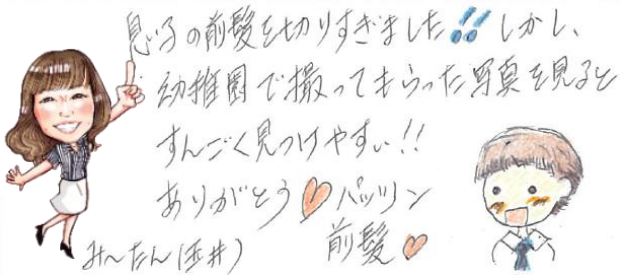 息子の前髪を切りすぎました!! しかし、
幼稚園で撮ってもらった写真を見ると
すんごく見つけやすい!!
ありがとう♡パッツン
前髪♡
み〜たん(玉井)